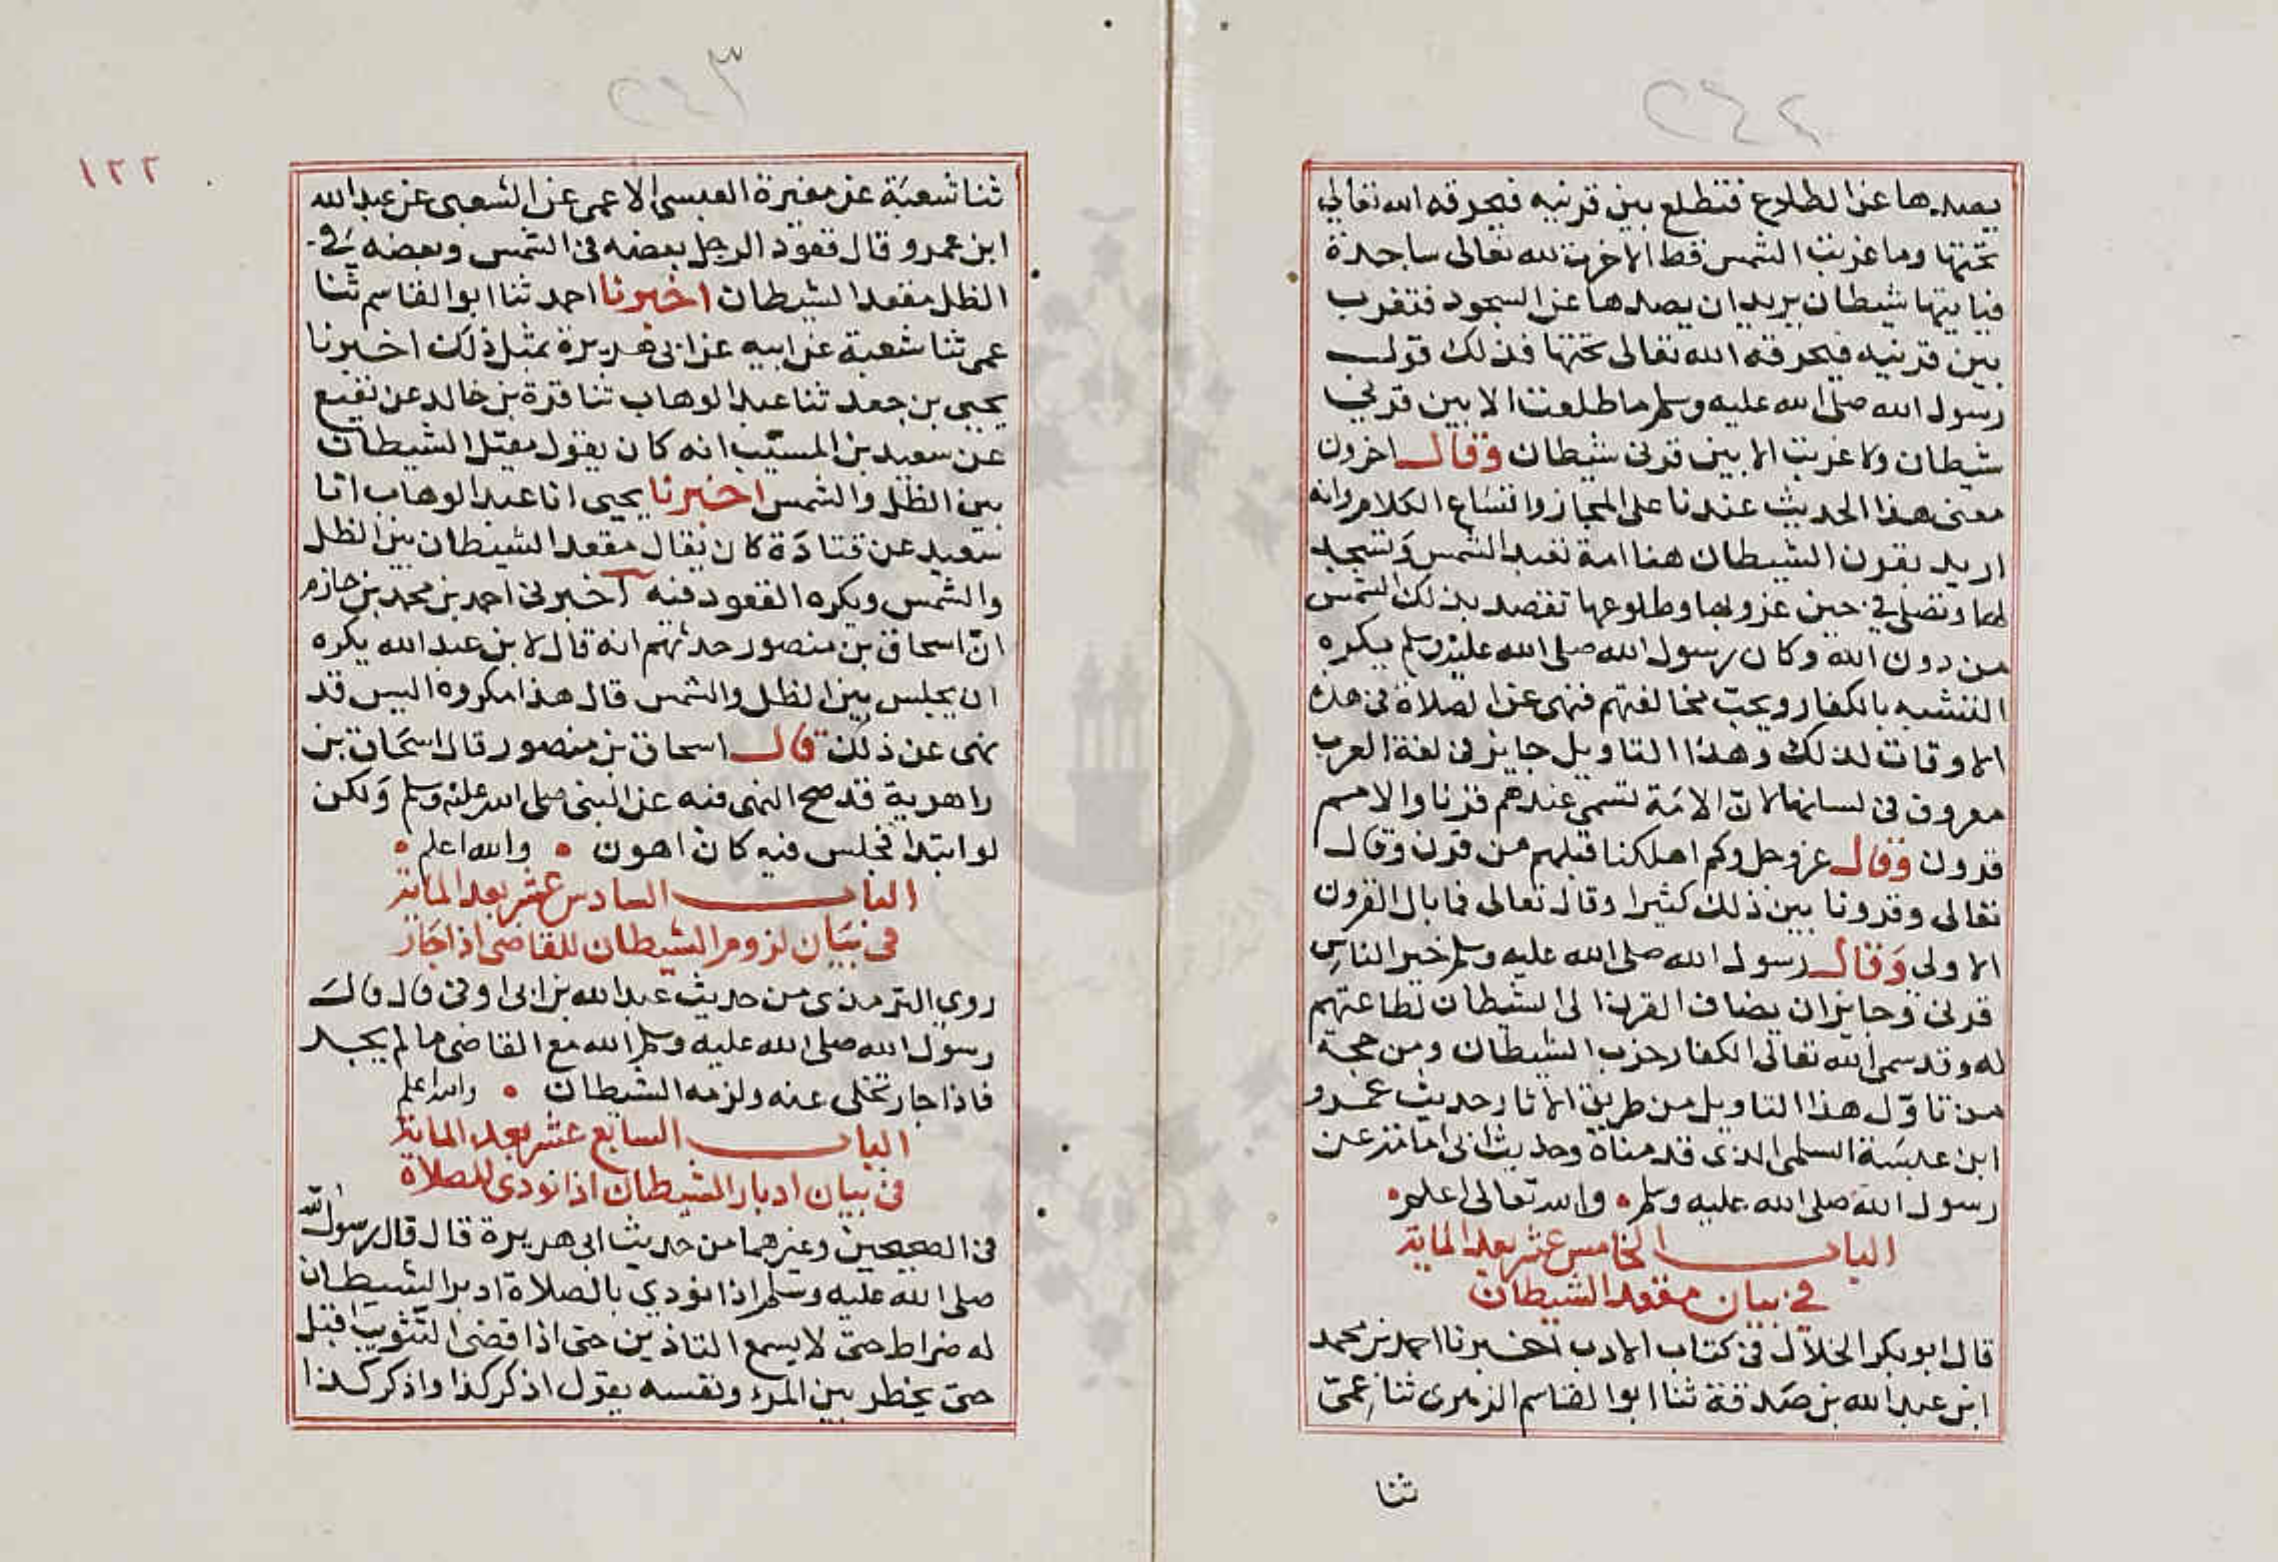 ٢٤٢
يصدها عن الطلوع فتطلع بين قرنيه فيحرقه الله تعالي
تحتها وما غربت الشمس قط الا خرت لله تعالى ساجدة
فياتيها شيطان يريد ان يصدها عن السجود فتغرب
بين قرنيه فيحرقه الله تعالى تحتها فذلك قول
رسول الله صلى الله عليه وسلم ما طلعت الا بين قرني
شيطان ولا غربت الا بين قرنى شيطان وقال اخرون
معنى هذا الحديث عندنا على المجاز واتساع الكلام وانه
اريد بقرن الشيطان هنا امة تعبد الشمس وتسجد
لها وتصلي في حين غروبها وطلوعها تقصد بذلك الشمس
من دون الله وكان رسول الله صلى الله عليه وسلم يكره
التشبه بالكفار ويحب مخالفتهم فنهى عن الصلاة فى هذه
الاوقات لذلك وهذا التاويل جايز فى لغة العرب
معروف فى لسانها لان الامة تسمى عندهم قرنا والامم
قرون وقال عز وجل وكم اهلكنا قبلهم من قرن وقال
تعالى وقرونا بين ذلك كثيرا وقال تعالى فما بال القرون
الاولي وقال رسول الله صلى الله عليه وسلم خير الناس
قرنى وجايز ان يضاف القرن الى الشيطان لطاعتهم
له وقد سمى الله تعالى الكفار حزب الشيطان ومن حجة
من تاوّل هذا التاويل من طريق الاثار حديث عمرو
ابن عبسة السلمى الذى قدمناه وحديث ابى امامة عن
رسول الله صلى الله عليه وسلم • والله تعالى اعلم •
الباب الخامس عشر بعد الماية
في بيان مقعد الشيطان
قال ابو بكر الخلال فى كتاب الادب اخبرنا احمد بن محمد
ابن عبد الله بن صدقة ثنا ابو القاسم الزهرى ثنا عمىّ
ثنا
٢٤٣
١٢٢
ثنا شعبة عن مغيرة العبسى الاعمى عن الشعبى عن عبد الله
ابن عمرو قال قعود الرجل بعضه فى الشمس وبعضه فى
الظل مقعد الشيطان اخبرنا احمد ثنا ابو القاسم ثنا
عمى ثنا شعبة عن ابيه عن ابى هريرة بمثل ذلك اخبرنا
يحيى بن جعد ثنا عبد الوهاب ثنا قرة بن خالد عن نفيع
عن سعيد بن المسيّب انه كان يقول مقيل الشيطان
بين الظل والشمس اخبرنا يحيى انا عبد الوهاب انا
سعيد عن قتادة كان يقال مقعد الشيطان بين الظل
والشمس ويكره القعود فيه اخبرنى احمد بن محمد بن حازم
انّ اسحاق بن منصور حدثهم انه قال لابن عبد الله يكره
ان يجلس بين الظل والشمس قال هذا مكروه اليس قد
نهى عن ذلك قال اسحاق بن منصور قال اسحاق بن
راهوية قد صح النهى فيه عن النبى صلى الله عليه وسلم ولكن
لو ابتدا فجلس فيه كان اهون • والله اعلم •
الباب السادس عشر بعد الماية
فى بيان لزوم الشيطان للقاضى اذا جار
روي الترمذى من حديث عبد الله بن ابى اوفى قال قال
رسول الله صلى الله عليه وسلم الله مع القاضى ما لم يجر
فاذا جار تخلى عنه ولزمه الشيطان • والله اعلم
الباب السابع عشر بعد الماية
فى بيان ادبار الشيطان اذا نودى للصلاة
فى الصحيحين وغيرهما من حديث ابى هريرة قال قال رسول الله
صلى الله عليه وسلم اذا نودي بالصلاة ادبر الشيطان
له ضراط حتى لا يسمع التاذين حتى اذا قضى التثويب اقبل
حتى يخطر بين المرء ونفسه يقول اذكر كذا واذكر كذا